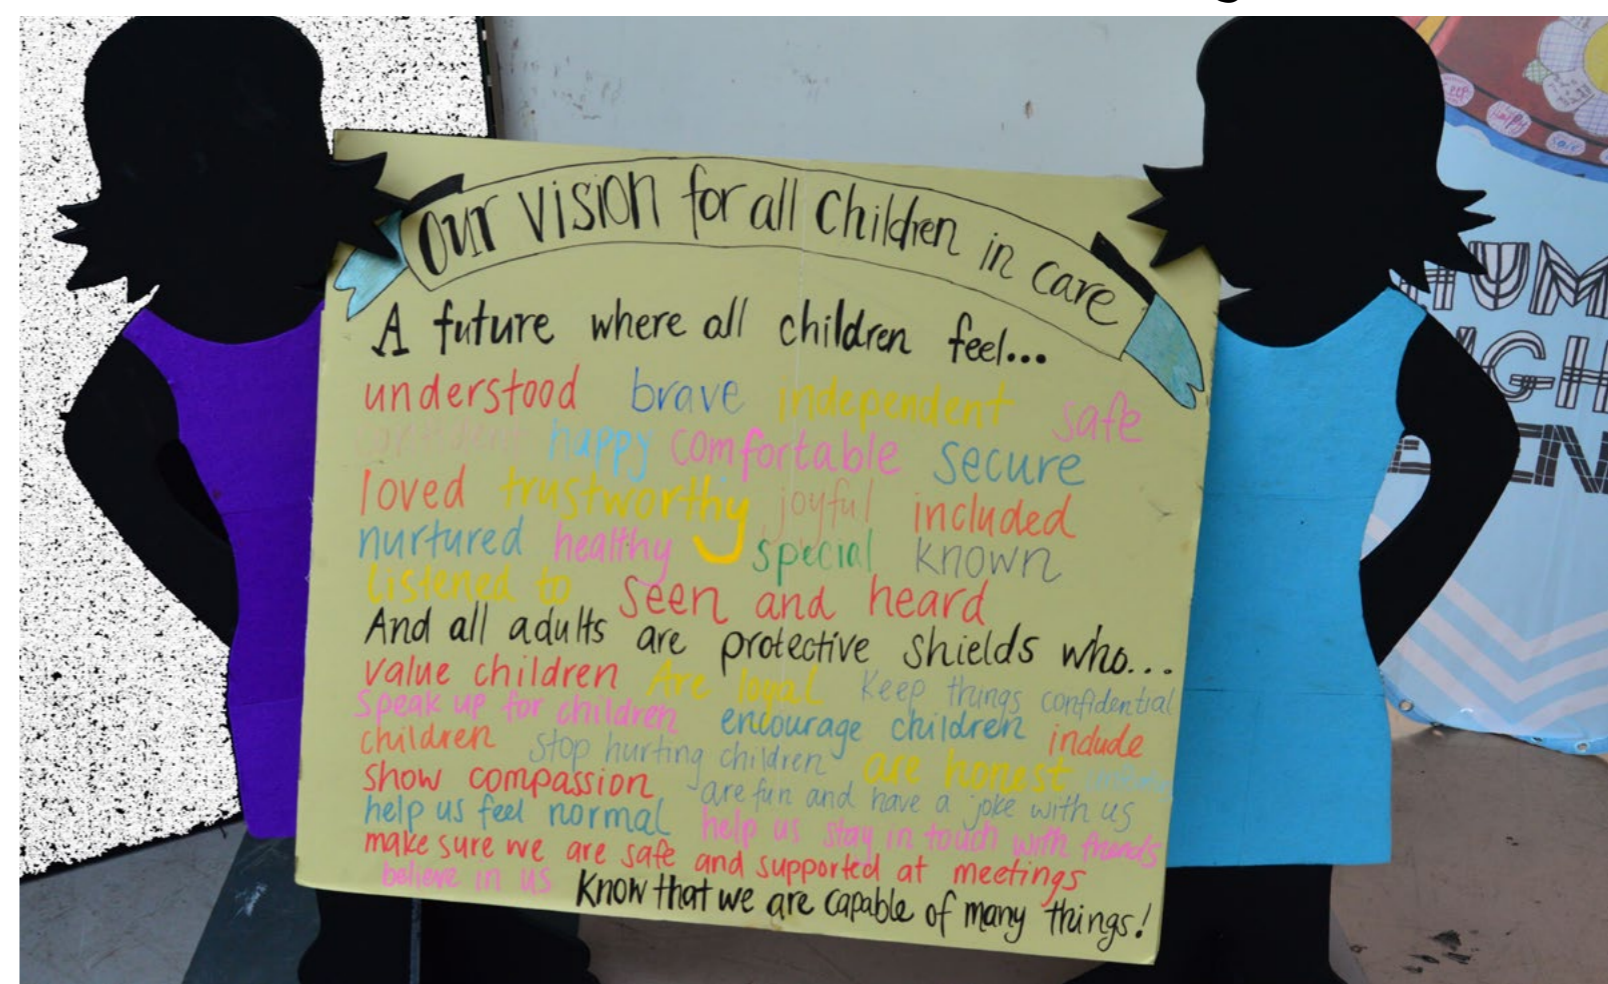 Our Vision for all Children in care
A future where all children feel...
understood brave independent safe
confident happy comfortable secure
loved trustworthy joyful included
nurtured healthy special known
Listened to seen and heard
And all adults are protective shields who...
value children Are loyal Keep things confidential
speak up for children encourage children include
children stop hurting children are honest
show compassion are fun and have a joke with us
help us feel normal help us stay in touch with friends
make sure we are safe and supported at meetings
believe in us Know that we are capable of many things!
Happy
HUM